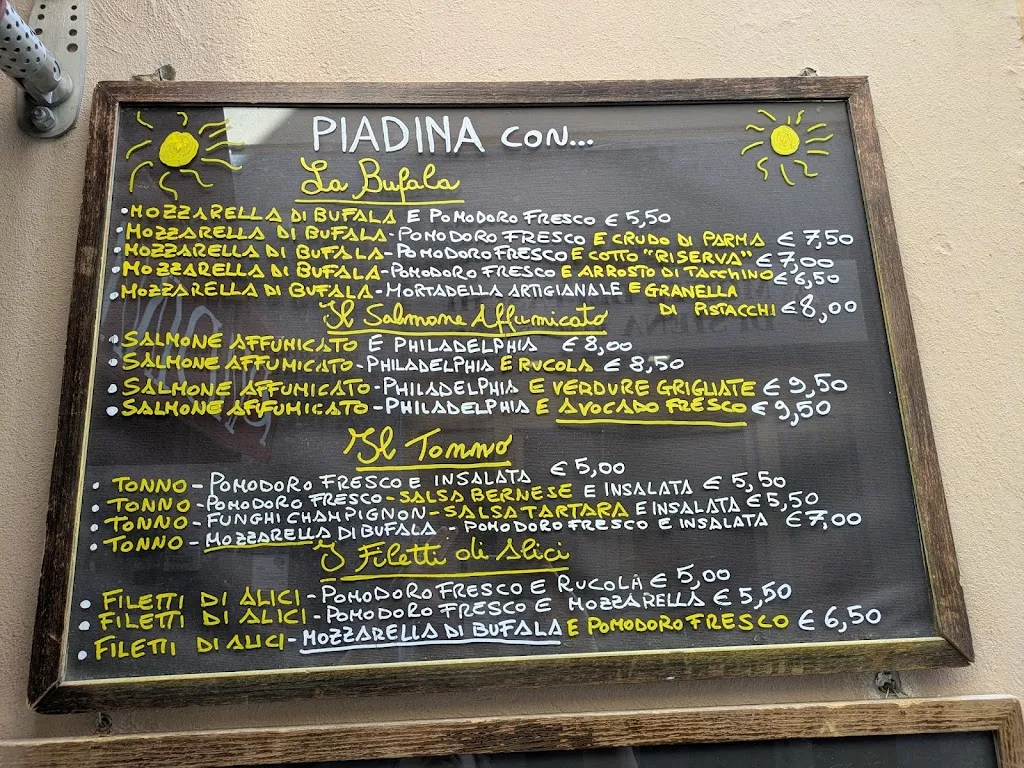 PIADINA CON...
La Bufala
•MOZZARELLA DI BUFALA E POMODORO FRESCO € 5,50
•MOZZARELLA DI BUFALA-POMODORO FRESCO E CRUDO DI PARMA € 7,50
•MOZZARELLA DI BUFALA-POMODORO FRESCO E COTTO "RISERVA" € 7,00
•MOZZARELLA DI BUFALA-POMODORO FRESCO E ARROSTO DI TACCHINO € 6,50
•MOZZARELLA DI BUFALA-MORTADELLA ARTIGIANALE E GRANELLA
DI PISTACCHI € 8,00
Il Salmone Affumicato
•SALMONE AFFUMICATO E PHILADELPHIA € 8,00
•SALMONE AFFUMICATO-PHILADELPHIA E RUCOLA € 8,50
•SALMONE AFFUMICATO-PHILADELPHIA E VERDURE GRIGLIATE € 9,50
•SALMONE AFFUMICATO-PHILADELPHIA E AVOCADO FRESCO € 9,50
Il Tonno
• TONNO-POMODORO FRESCO E INSALATA € 5,00
• TONNO-POMODORO FRESCO-SALSA BERNESE E INSALATA € 5,50
• TONNO-FUNGHI CHAMPIGNON-SALSA TARTARA E INSALATA € 5,50
• TONNO-MOZZARELLA DI BUFALA - POMODORO FRESCO E INSALATA € 7,00
I Filetti di Alici
• FILETTI DI ALICI-POMODORO FRESCO E RUCOLA € 5,00
• FILETTI DI ALICI-POMODORO FRESCO E MOZZARELLA € 5,50
• FILETTI DI ALICI-MOZZARELLA DI BUFALA E POMODORO FRESCO € 6,50